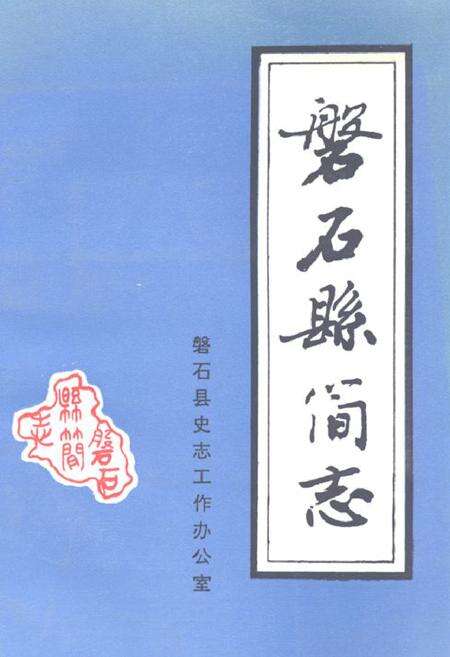 磐石縣简志
磐石县史志工作办公室
磐石
縣簡
志